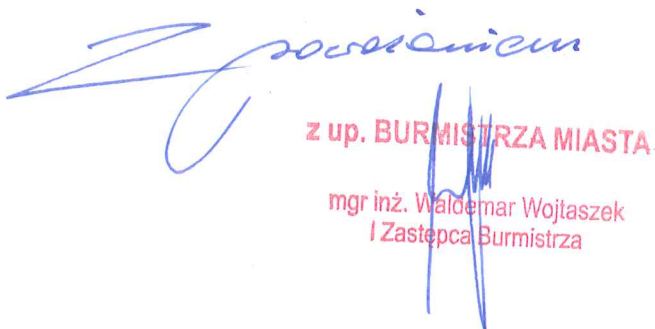 Z poważaniem
z up. BURMISTRZA MIASTA
mgr inż. Waldemar Wojtaszek
I Zastępca Burmistrza